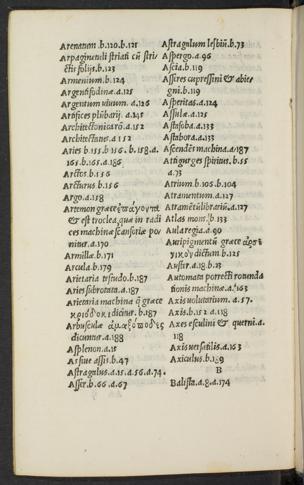 Arenatum .b.120.b.121
Arpagineculi striati cū stri-
ctis folijs.b.123
Armenium.b.124
Argentifodinæ.a.125
Argentum uiuum.a.126
Artifices plūbarij.a.145
Architectonicarū.a.152
Architectus.a 153
Aries b.155.b 156.b.158.a.
165.b.165.a.186
Arctos.b.156
Arcturus.b.156
Argo.a.158
Artemon græce ἐπάγοντα
& est troclea, quæ in radi
ces machinæ scansoriæ po
nitur.a.170
Armillæ.b.171
Arcula.b.179
Arietaria testudo.b.187
Aries subrotata.a.187
Arietaria machina q̄ græce
κριοδόκι dicitur.b.187
Arbusculæ ἁμαξόποδες
dicuntur.a.188
Asplenon.a.15
Arsiue assis.b.47
Astragalus.a.15.a.56.a.74.
Asser.b.66.a.67
Astragulum lesbiū.b.73
Aspergo.a.96
Ascia.b.119
Asseres cupressini & abie-
gni.b.119
Asperitas.a.124
Assulæ.a.125
Astasoba.a.133
Astabora.a.133
Ascendēs machina.a.187
Attigurges spirius.b.55
a.73
Atrium.b.105.b.104
Atramentum.a.127
Atramētū librariū.a.127
Atlas mons.b.133
Aula regia.a.90
Auripigmentū græce ἀρσε
νικον dictum.b.125
Auster.a.18.b.23
Automata potrecti rotundā
tionis machina.a.163
Axis uolutarium.a.57.
Axis.b.152.a.118
Axes esculini & querni.a.
118
Axis uersatilis.a.163
Axiculus.b.159
B
Balista.a.8.a.174